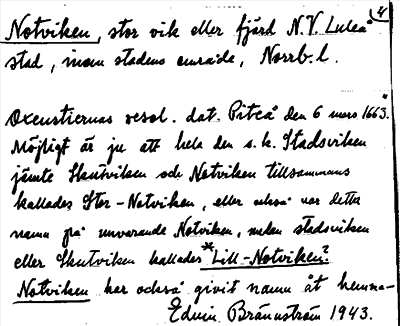 4
Notviken, stor vik eller fjärd N.V. Luleå
stad, inom stadens område, Norrb. l.
Oxenstiernas resol. dat. Piteå den 6 mars 1663.
Möjligt är ju att hela den s.k. Stadsviken
jämte Skutviken och Notviken tillsammans
kallades Stor-Notviken, eller också var detta
namn på nuvarande Notviken, medan stadsviken
eller Skutviken kallades *Lill-Notviken?
Notviken har också givit namn åt hemma-
Edvin Brännström 1943.